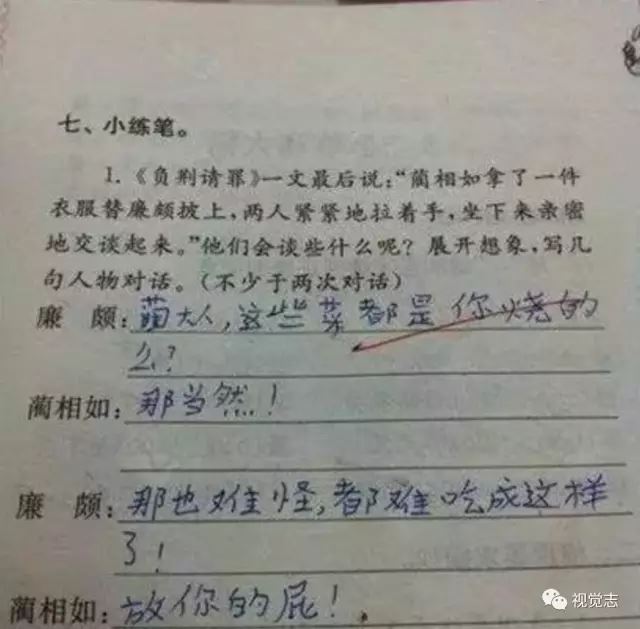 七、小练笔。
1.《负荆请罪》一文最后说:“蔺相如拿了一件
衣服替廉颇披上,两人紧紧地拉着手,坐下来亲密
地交谈起来。”他们会谈些什么呢?展开想象,写几
句人物对话。(不少于两次对话)
廉 颇:蔺大人,这些菜都是你烧的
么?
蔺相如:那当然!
廉 颇:那也难怪,都难吃成这样
了!
蔺相如:放你的屁!
视觉志